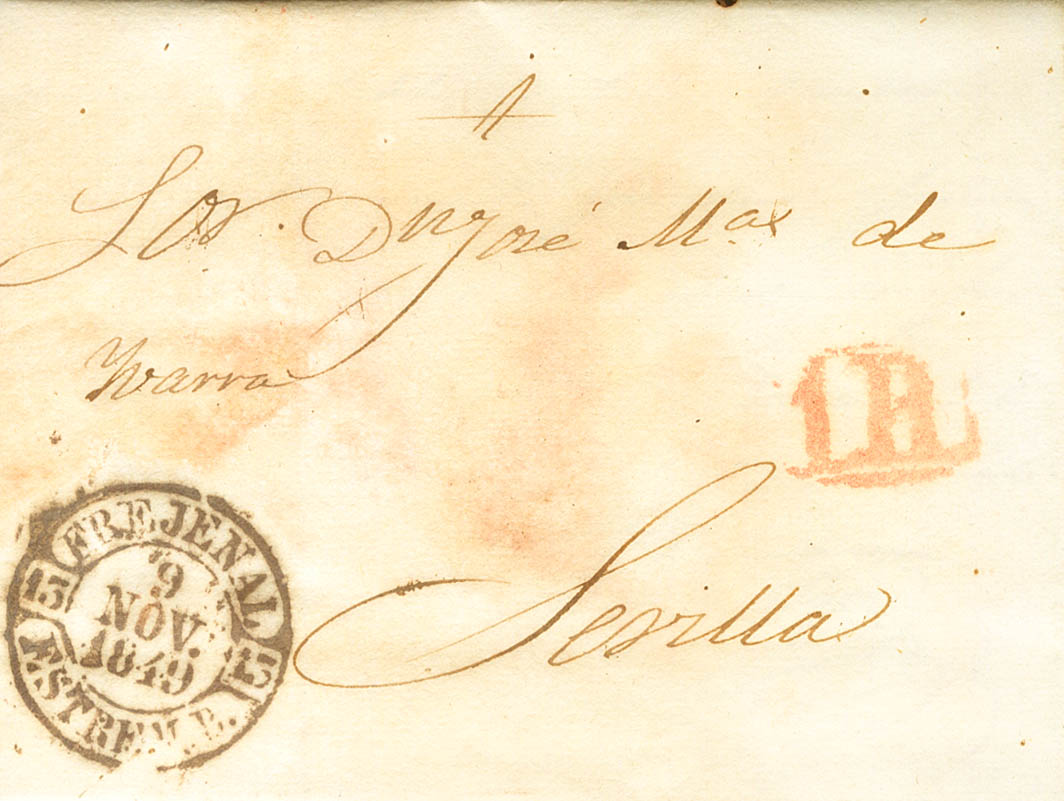 Sor. Dn José Ma de
Ybarra
1R
Sevilla
FREJENAL
9
NOV.
1849
13 13
ESTREM.B.